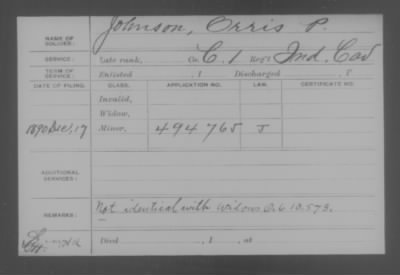 NAME OF SOLDIER: Johnson, Orris P.
SERVICE: Late rank, Co. C. 1 Reg't Ind. Cav
TERM OF SERVICE: Enlisted , 1 Discharged , 1
DATE OF FILING. CLASS. APPLICATION NO. LAW. CERTIFICATE NO.
Invalid,
Widow,
1890 Dec, 17 Minor, 494765 J
ADDITIONAL SERVICES:
REMARKS: Not identical with Widows O. 610.573.
Died , 1 , at